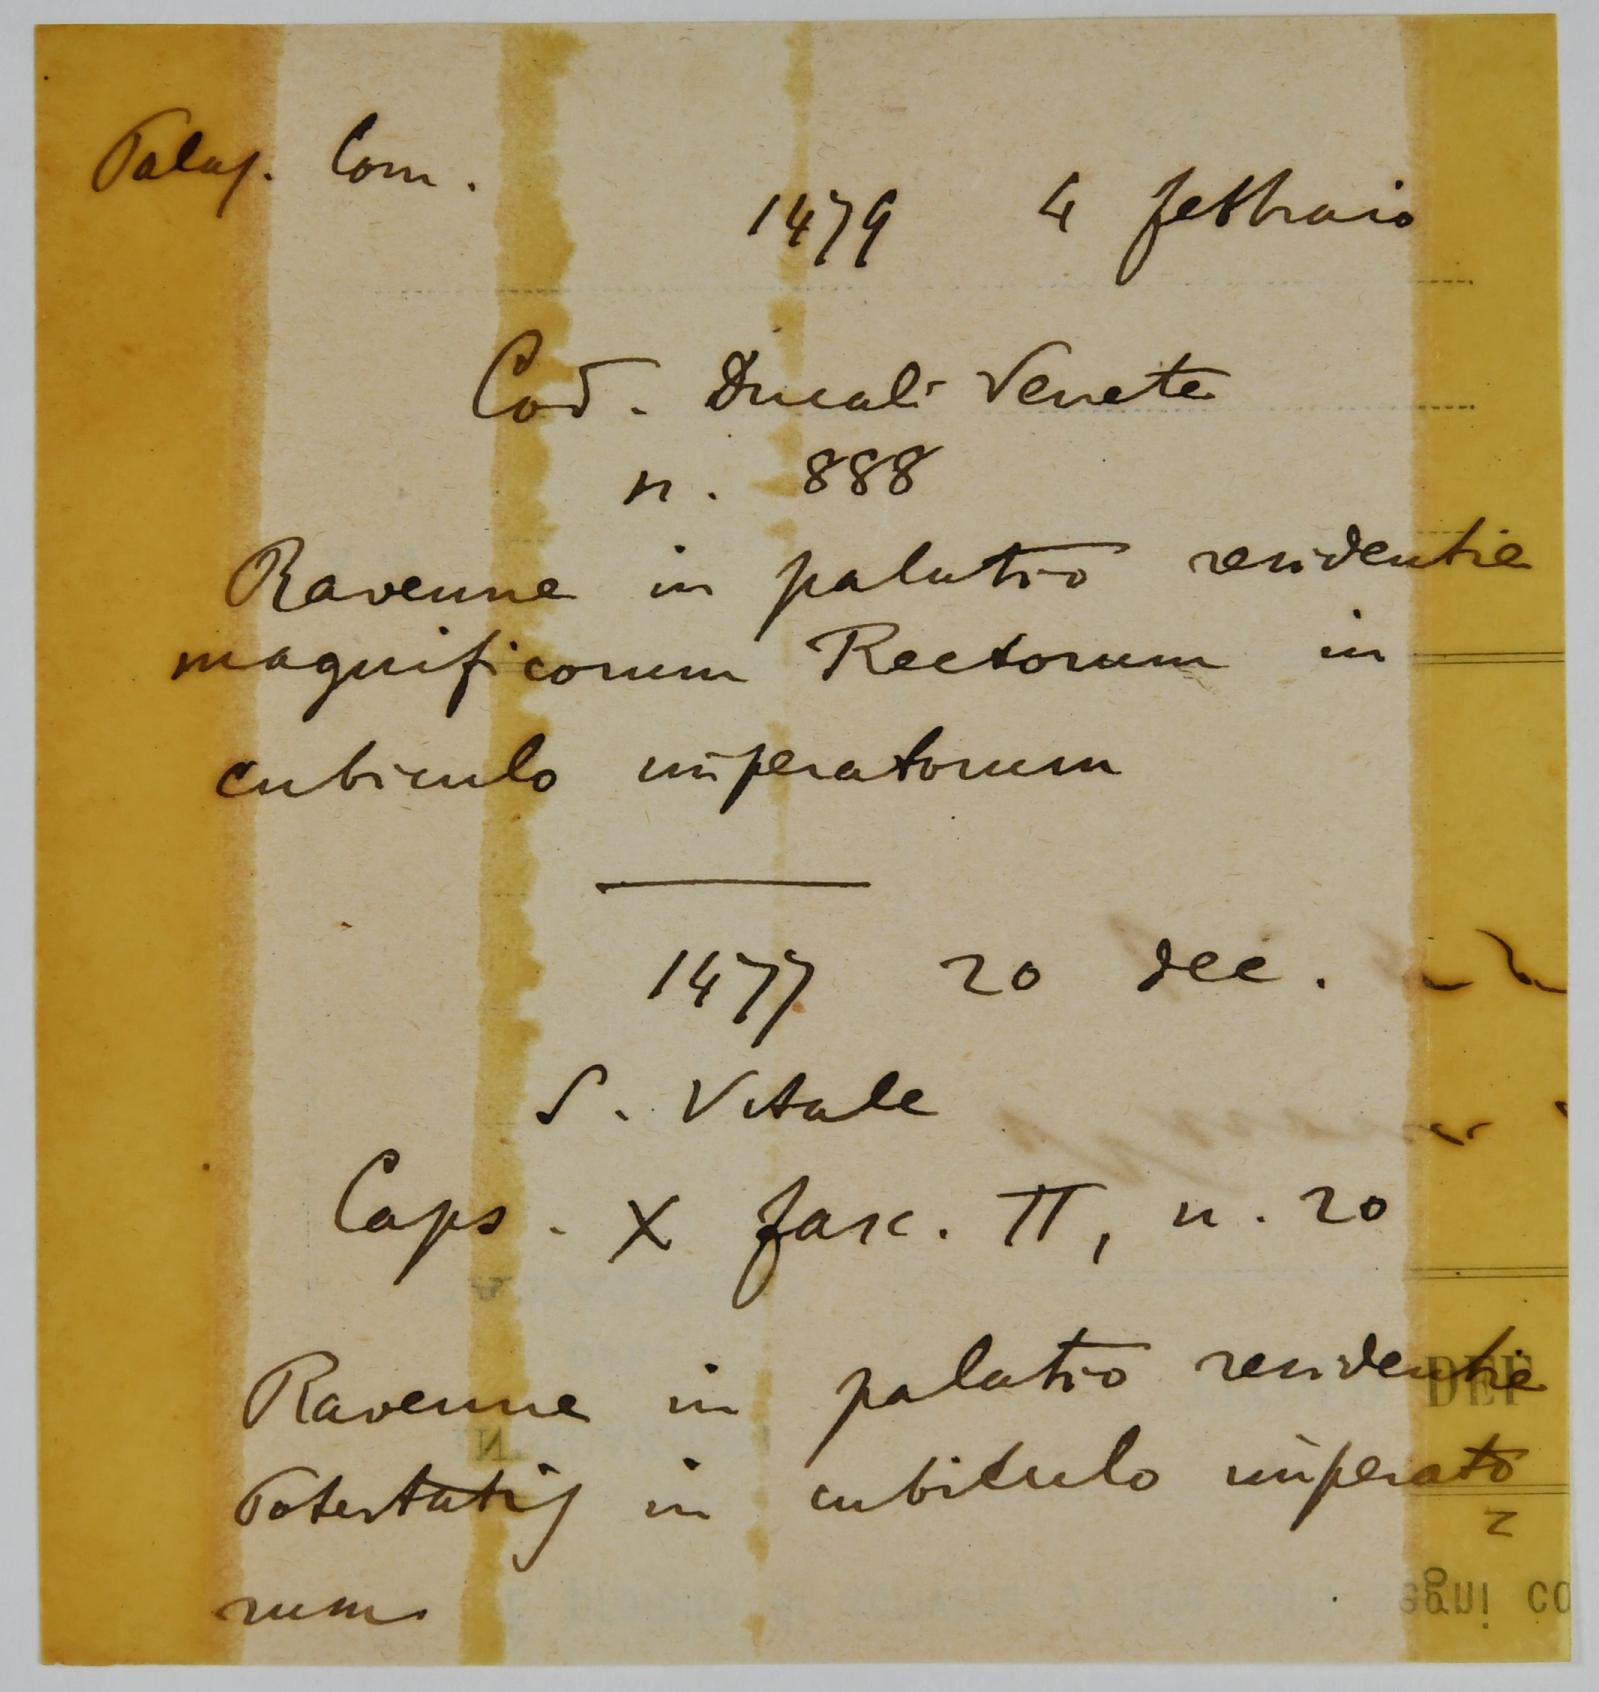 Palaz. Com.
1479 4 febbraio
Cod. Ducali Venete
n. 888
Ravenne in palatio residentie
magnificorum Rectorum in
cubiculo imperatorum
1477 20 dec.
S. Vitale
Caps. X fasc. II, n. 20
Ravenne in palatio residentie
Potestatis in cubiculo imperato
rum